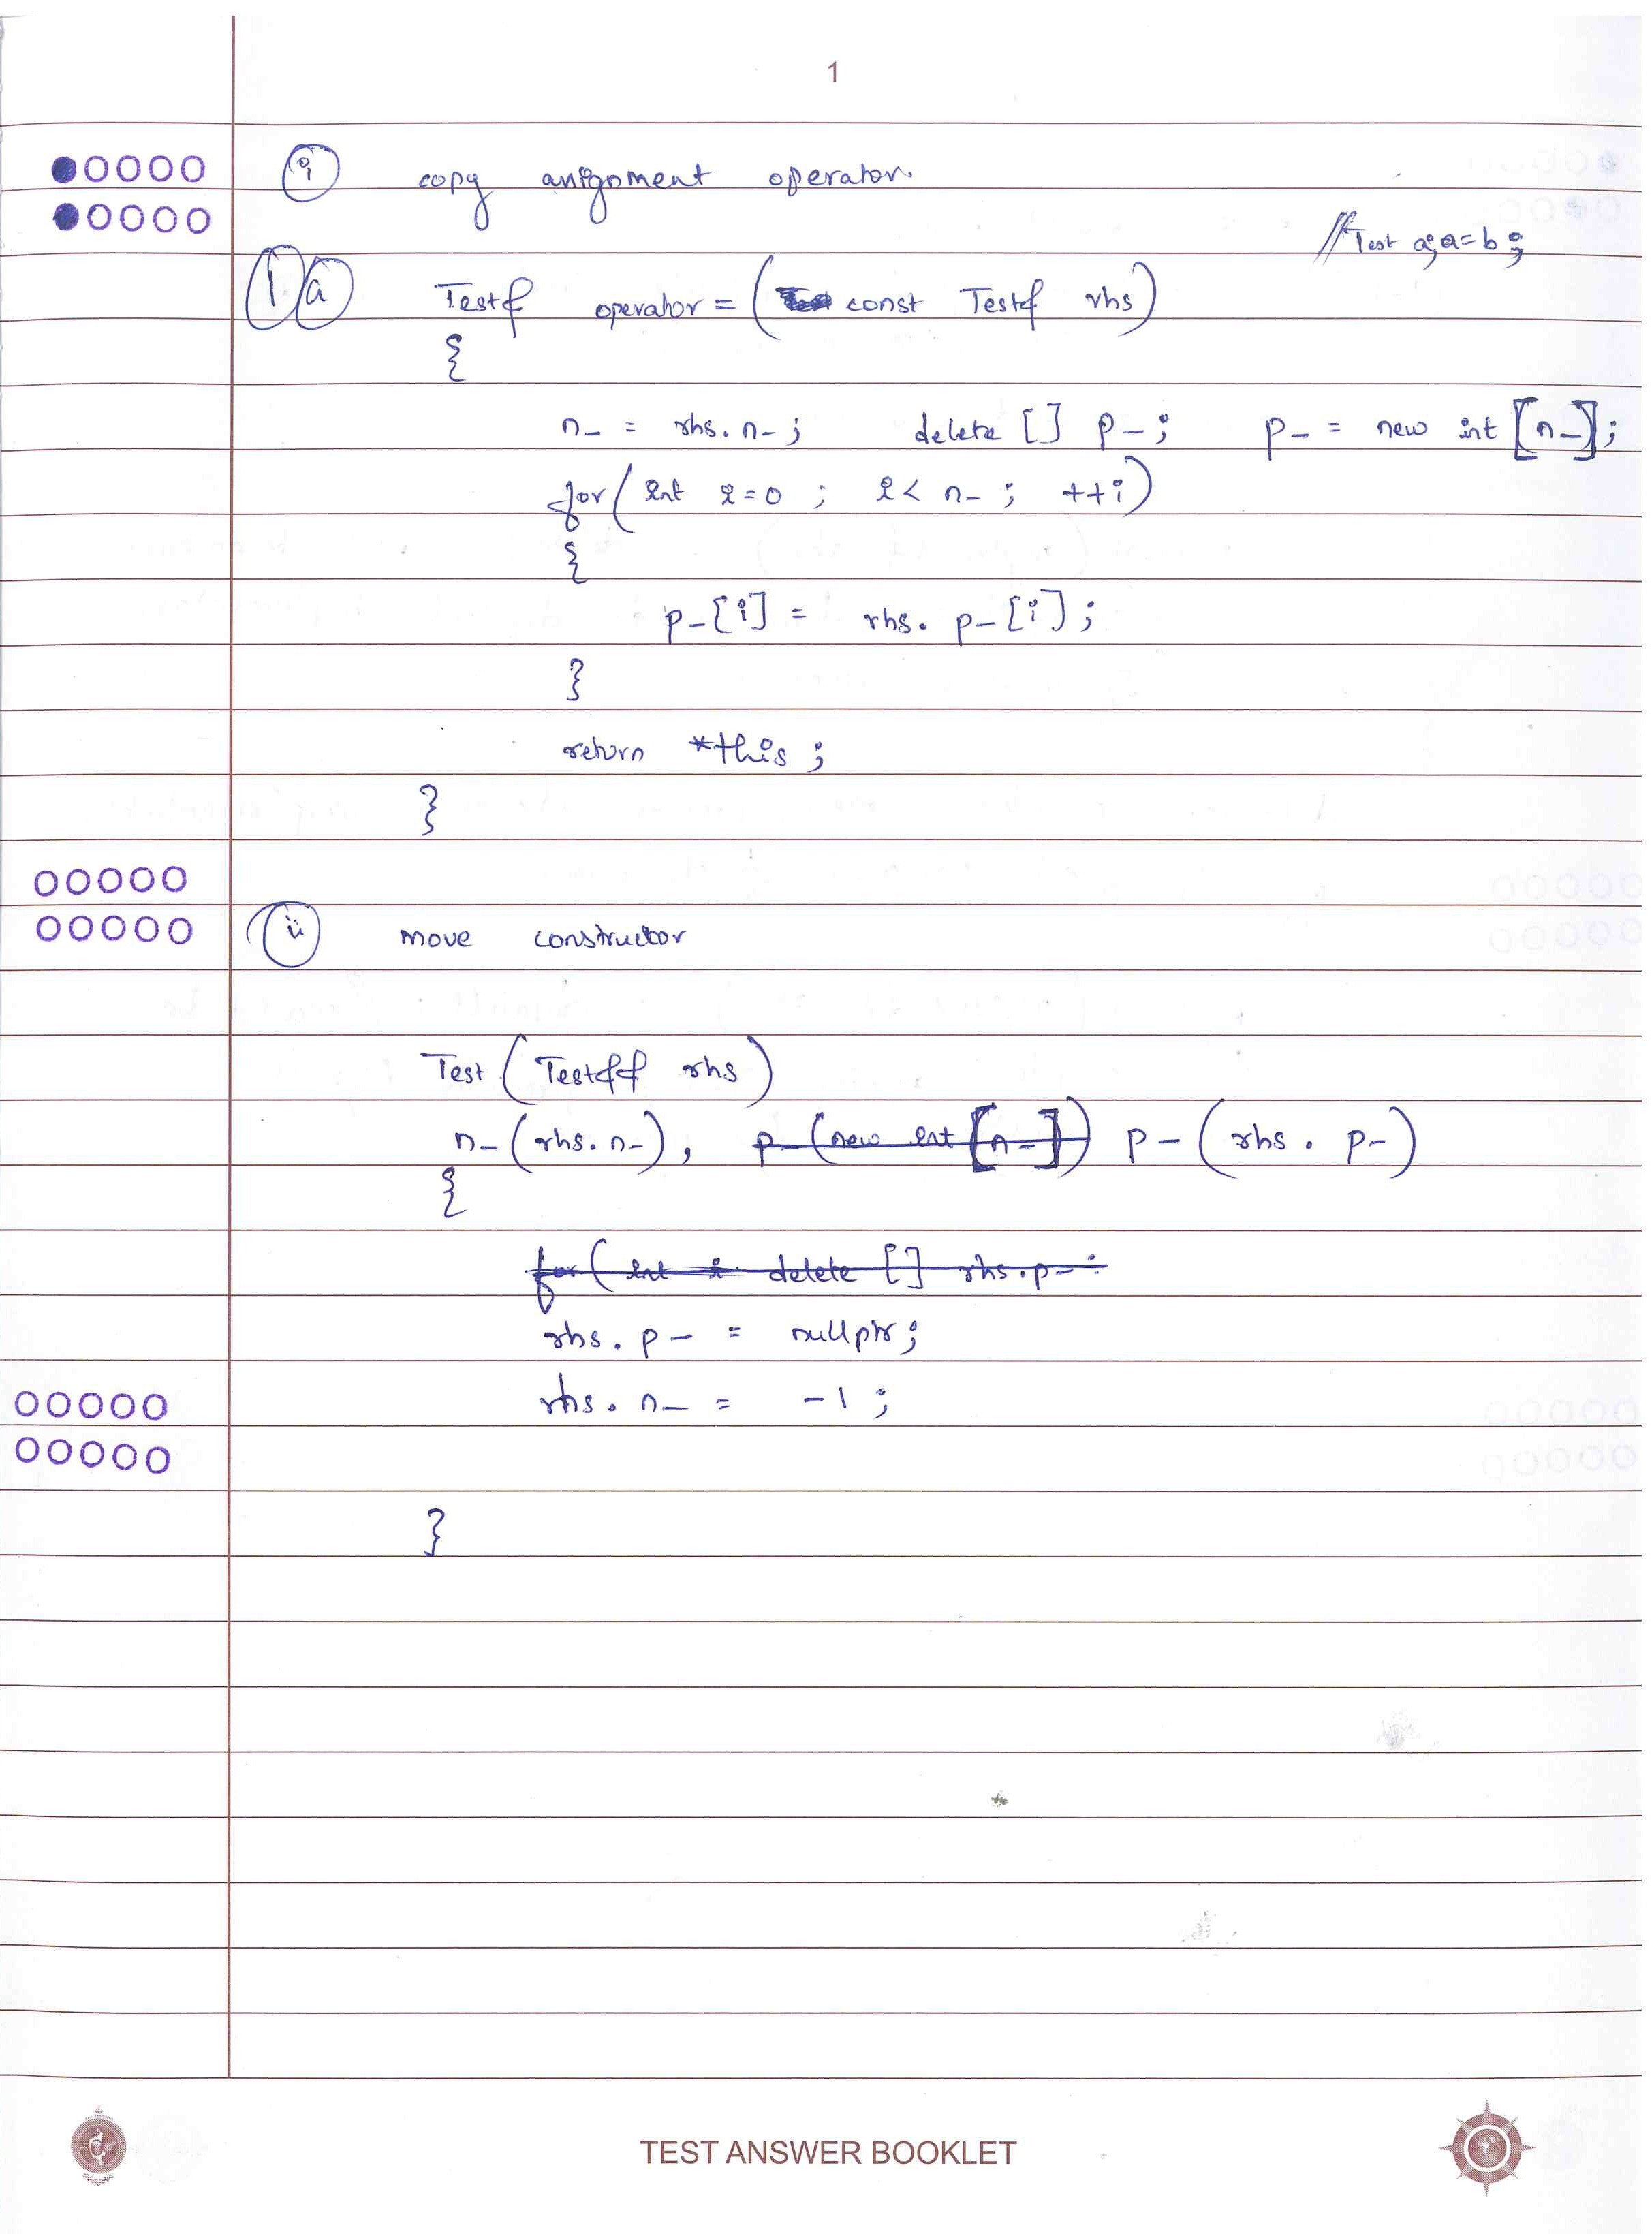 1
i copy assignment operator.
//Test a;a=b;
1 a Test& operator = ( const Test& rhs)
{
n_ = rhs.n_; delete [] p_; p_ = new int [n_];
for( int i=0 ; i< n_ ; ++i)
{
p_[i] = rhs. p_[i];
}
return *this;
}
ii move constructor
Test (Test&& rhs)
n_(rhs.n_), p_(new int [n_]) p_(rhs. p_)
{
for( int i delete [] rhs.p_;
rhs. p_ = nullptr;
rhs. n_ = -1;
}
TEST ANSWER BOOKLET